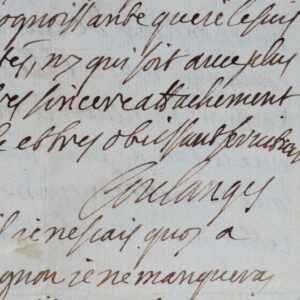 ognoissante que ie le suis
qui soit avec plus
sincere attachement
et tres obeissant serviteur
Coulanges
ie ne scais quoy a
ie ne manqueray